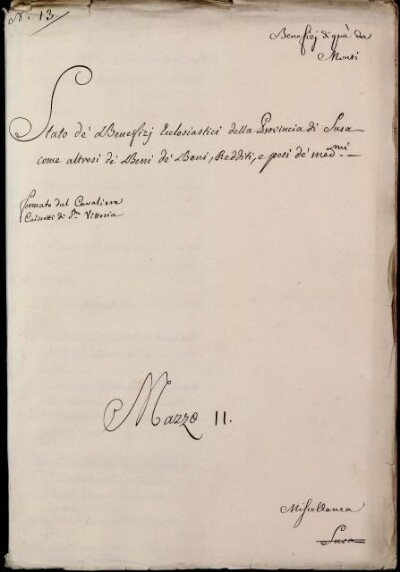 N.° 13.
Benefizj di quà da
Monti
Stato de' Benefizj Ecclesiastici della Provincia di Susa
come altresì de' Beni de' Beni, Redditi, e pesi de' med.mi
formato dal Cavaliere
Caissotti di S.ta Vittoria
Mazzo 11.
Miscellanea
Susa